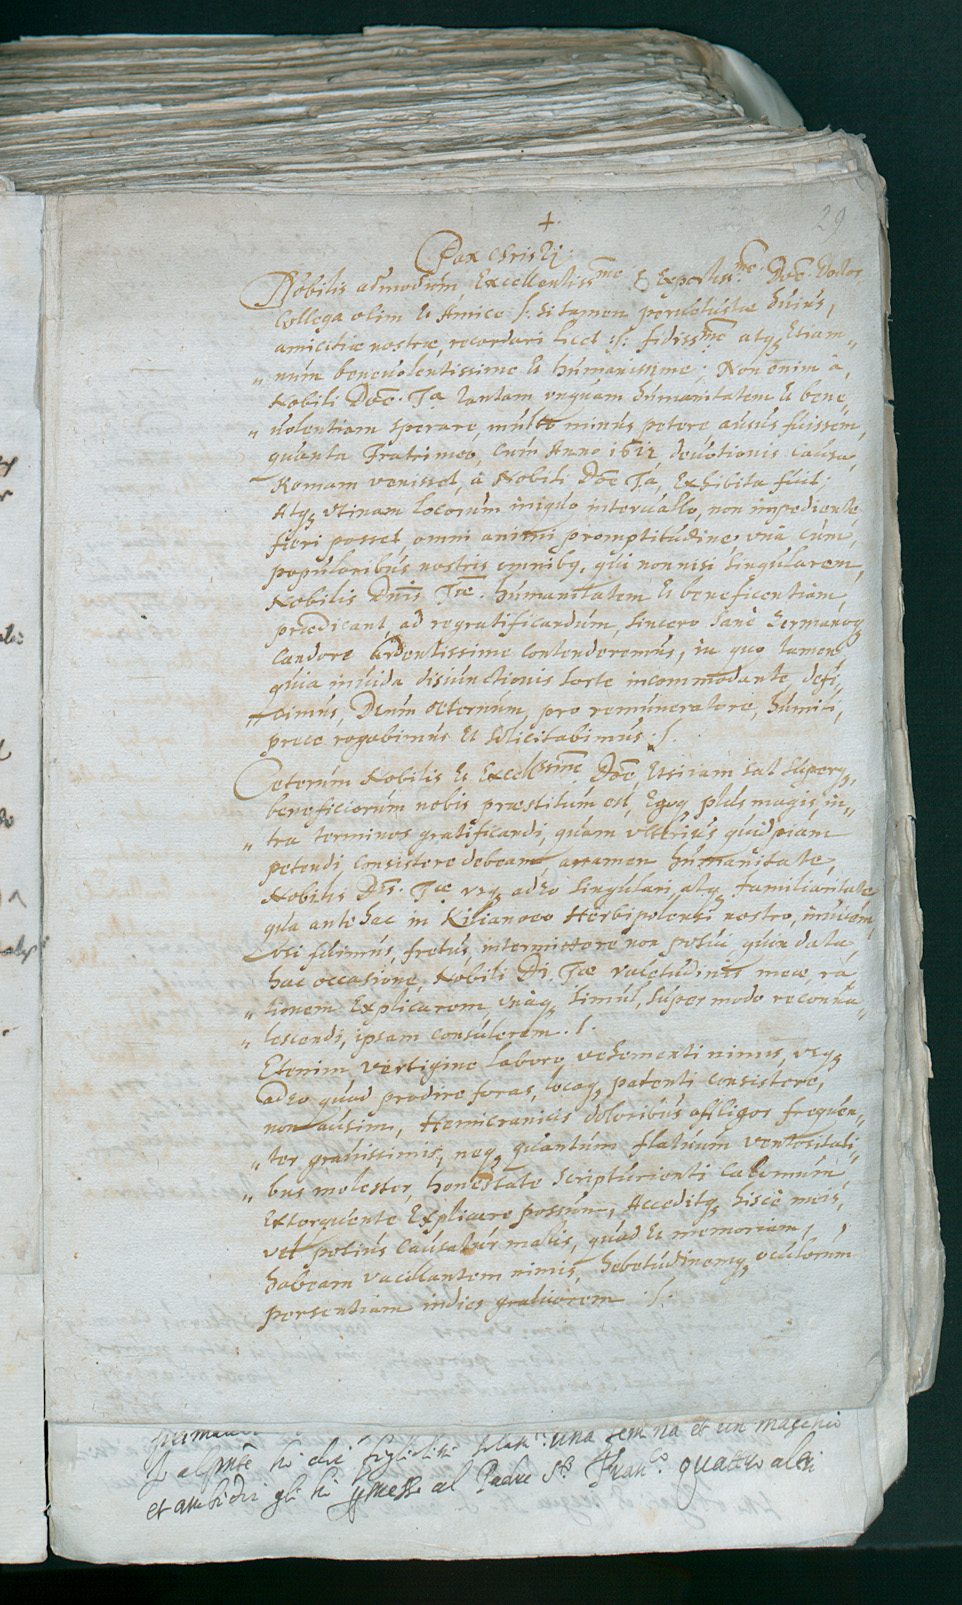 29
+
Pax Christi.
Nobilis admodum, Excellentiss.me & Expertiss.me D̄ne Doctor
Collega olim et Amice /: si tamen pervetustæ huius,
amicitiæ nostræ, recordari licet :/ fidiss.me atq3 Etiam„
„num benevolentissime et humanissime; Non enim à,
Nobili D̄ne Tā tantam unquam humanitatem et bene„
„uolentiam sperare, multo minus petere ausus fuissem,
quanta Fratri meo, cum Anno 1612, deuotionis causa,
Romam venisset, à Nobili D̄ne Tā, Exhibita fuit;
Atq3 Vtinam locorum iniquo interuallo, non impediente,
fieri posset, omni animi promptitudine, vnà cum,
popularibus nostris omnibq, qui non nisi singularem,
Nobilis Dnis Tæ humanitatem et beneficentiam,
prædicant, ad regratificandum, sincero sanè Germanoq3
Candore Ardentissime contenderemus, in quo tamen
quia inuida disiunctionis sorte incommodante, defi„
„cimus, Deum æternum, pro remuneratore, humili,
prece rogabimus et solicitabimus ./.
Ceterum Nobilis et Excell.ssime D̄ne, Etsi iam sat superq3,
beneficiorum nobis præstitum est, Egoq3 plus magis, in„
„tra terminos gratificandi, quàm vlterius quidpiam
petendi, consistere debeam attamen humanitate,
Nobilis Dis. Tæ vsq3 adeo singulari, atq3 familiaritate
qua ante hac in Kilianeo Herbipolensi nostro, inuicem,
Vsi fuimus, fretus, intermittere non potui quin data,
hac occasione, Nobili Di Tæ valetudinis meæ, ra
„tionem Explicarem, vnàq3 simul, super modo reconua„
„lescendi, ipsam consulerem ./.
Etenim, vertigine laboro, vehementi nimis, vsq3
Adeo quod prodire foras, locoq3 patenti consistere,
non ausim, Hemicranicis doloribus affligor frequen„
„ter grauissimis, neq3 quantum flatuum ventositati„
„bus molester, honestate scripturienti calamum,
Extorquente Explicare possum, Acceditq3 hisce meis,
vel potius causatur malis, quod et memoriam,
habeam vacillantem nimis, hebetudinemq3 oculorum
persentiam indies grauiorem ./.
una femina et un maschio
et ambidui gli hà al Padre Fran.co quattro altri